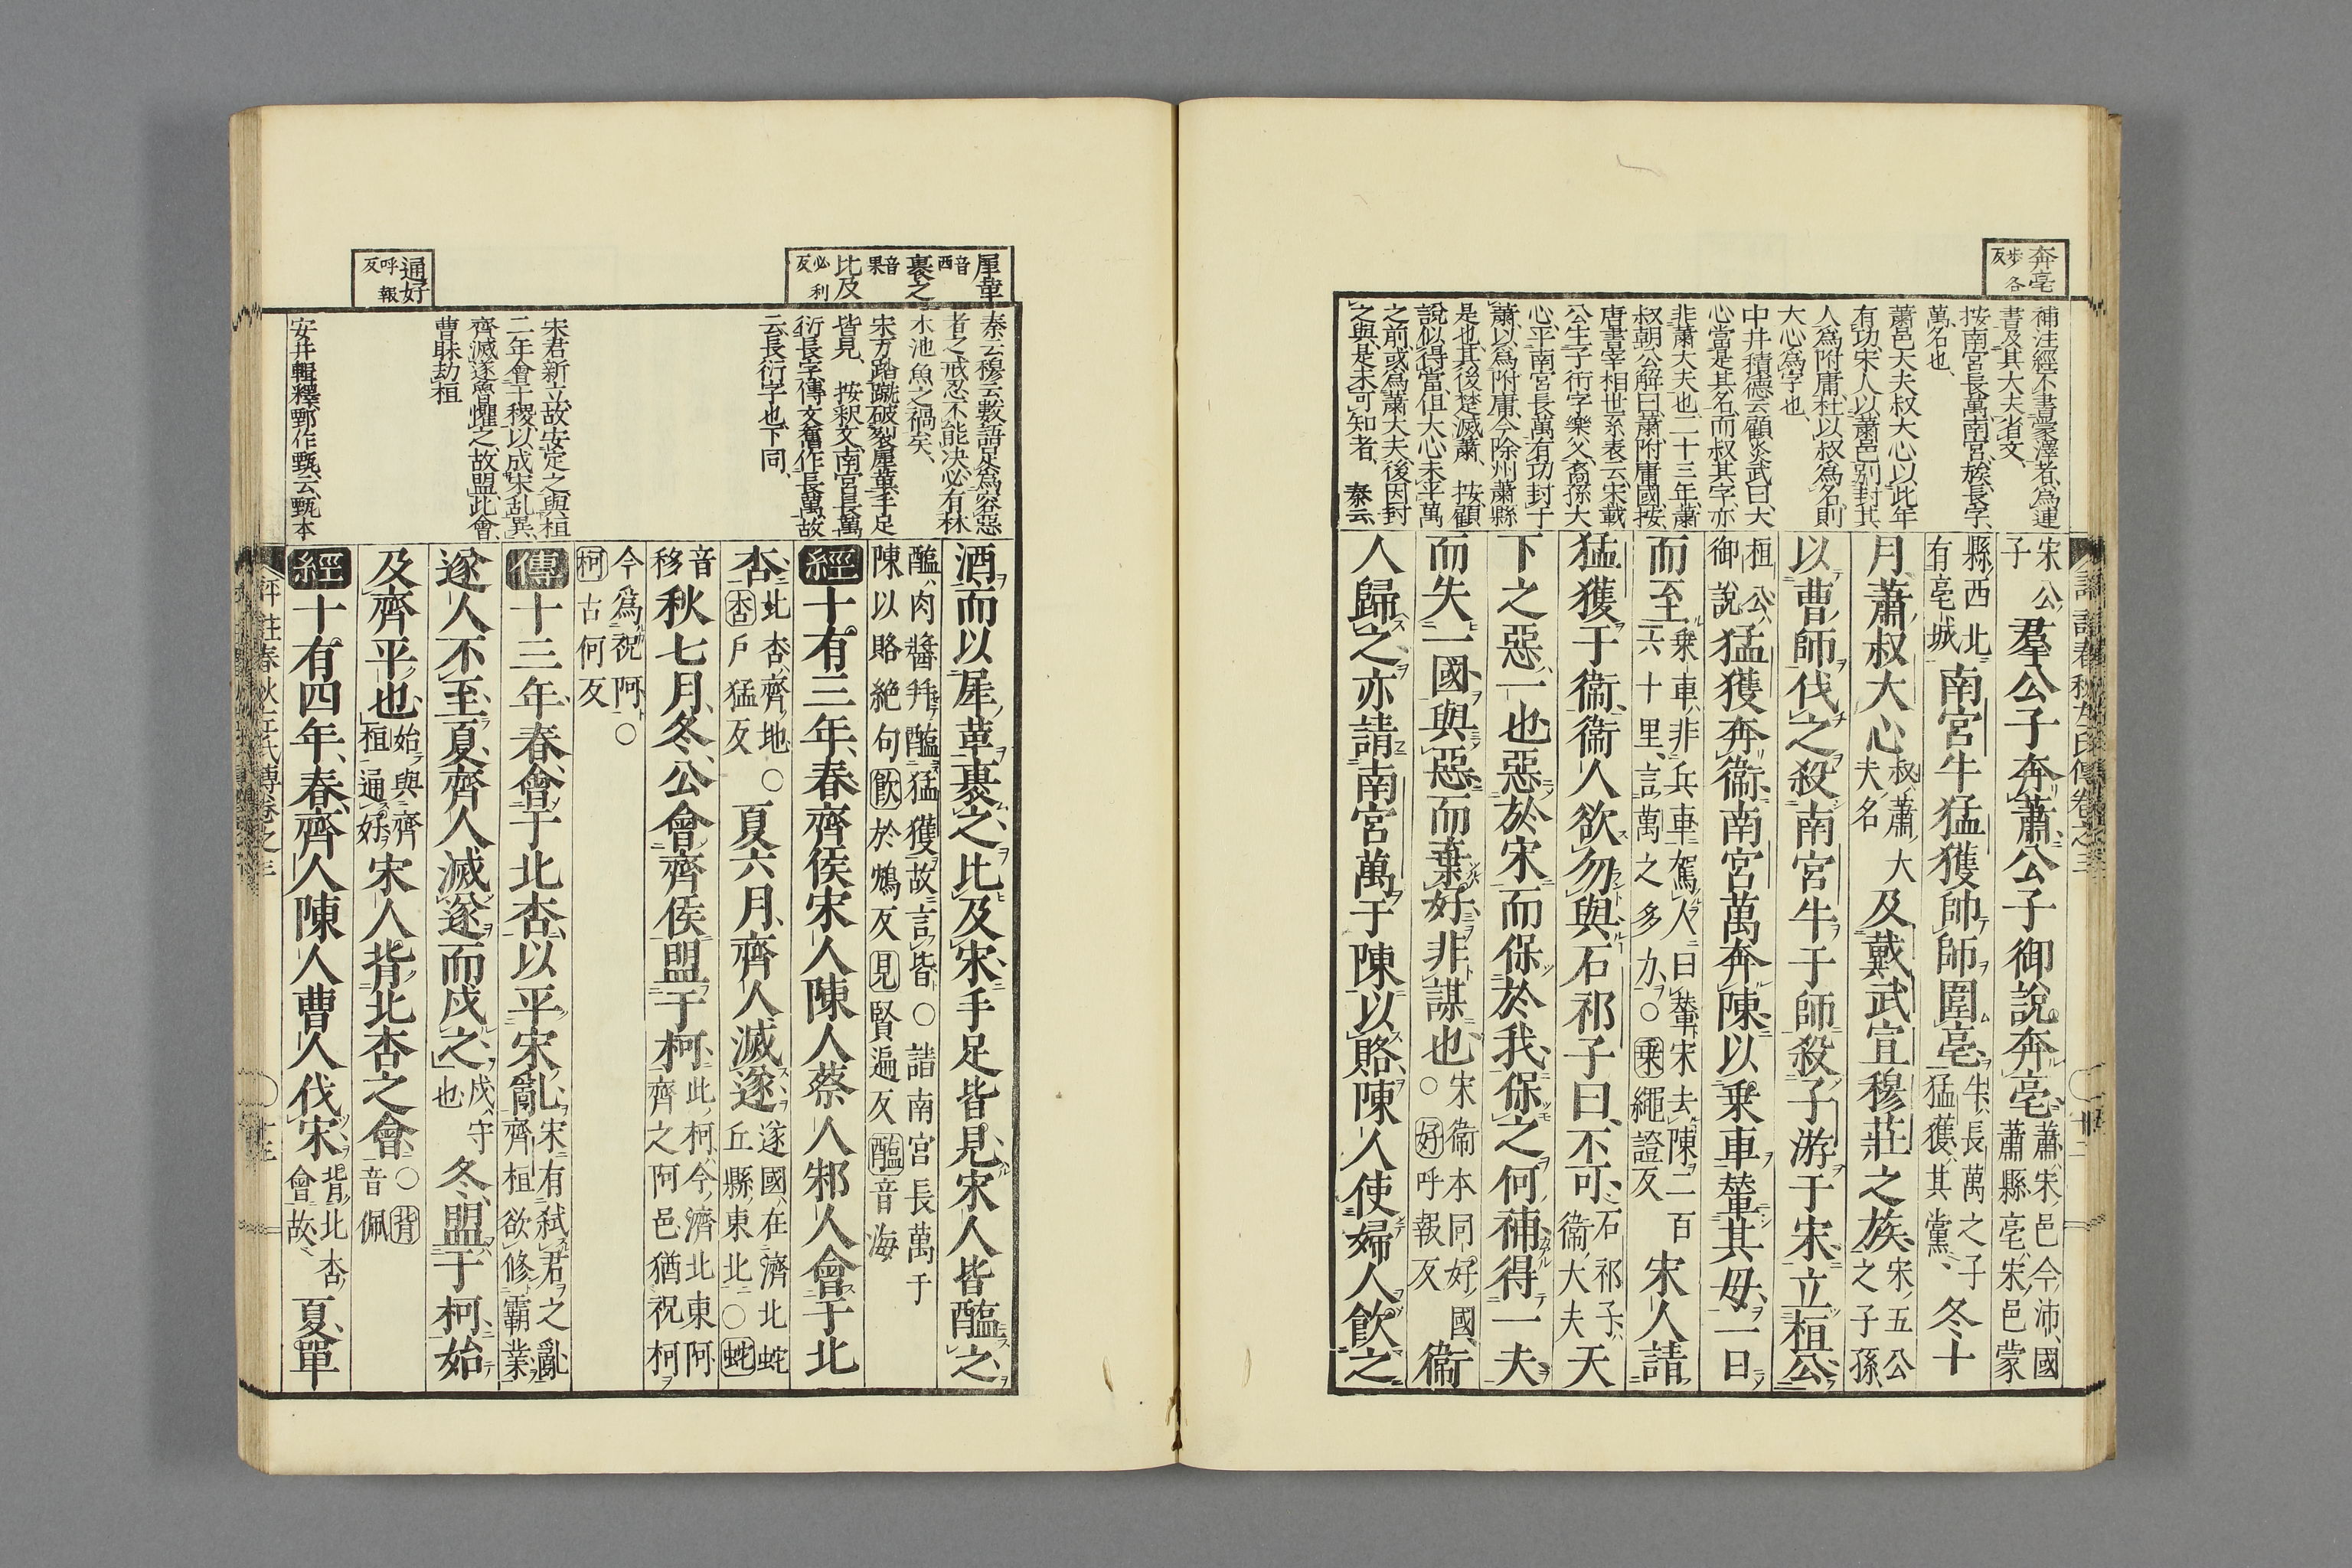 奔亳 歩各反
補注經不書蒙澤者為連
書及其大夫省文、
按南宮長萬南宮族長字、
萬名也、
蕭邑大夫叔大心以此年
有功宋人以蕭邑別封其
人為附庸杜以叔為名則
大心為字也、
中井積德云顧炎武曰大
心當是其名而叔其字亦
非蕭大夫也二十三年蕭
叔朝公解曰蕭附庸國按
唐書宰相世系表云宋戴
公生子衎字樂父裔孫大
心平南宮長萬有功封于
蕭以為附庸今除州蕭縣
是也其後楚滅蕭、按顧
說似得當但大心未平萬
之前或為蕭大夫後因封
之與是未可知者、秦云
宋公子羣公子奔蕭公子御說奔亳蕭宋邑今沛國蕭縣亳宋邑蒙
縣西北有亳城南宮牛猛獲帥師圍亳牛長萬之子猛獲其黨冬十
月蕭叔大心叔蕭大夫名及戴武宣穆莊之族宋五公之子孫
以曹師伐之殺南宮牛于師殺子游于宋立桓公
桓公御說猛獲奔衞南宮萬奔陳以乘車輦其母一日
而至乘車非兵車駕人曰輦宋去陳二百六十里言萬之多力○乘繩證反宋人請
猛獲于衞衞人欲勿與石祁子曰不可石祁子衞大夫天
下之惡一也惡於宋而保於我保之何補得一夫
而失一國與惡而棄好非謀也宋衞本同好國○好呼報反衞
人歸之亦請南宮萬于陳以賂陳人使婦人飲之
犀革 音西 裹之 音果 比及 必利反
通好 呼報反
秦云穆云數語足為容惡
者之戒忍不能決必有林
木池魚之禍矣、
宋方踏蹴破裂犀革手足
皆見、按釈文南宮長萬
衍長字傳文舊作長萬故
云長衍字也下同、
宋君新立故安定之與桓
二年會于稷以成宋乱異
齊滅遂魯懼之故盟此會
曹眛劫桓
安井輯釋鄄作甄云甄本
酒而以犀革裹之比及宋手足皆見宋人皆醢之
醢肉醬幷醢猛獲故言皆○諸南宮長萬于陳以賂絕句飲於鴆反見賢遍反醢音海
經十有三年春齊侯宋人陳人蔡人邾人會于北
杏北杏齊地○杏戶猛反夏六月齊人滅遂遂國在濟北蛇丘縣東北○蛇
音移秋七月冬公會齊侯盟于柯此柯今濟北東阿齊之阿邑猶祝柯
今為祝阿○柯古何反
傳十三年春會于北杏以平宋亂宋有弑君之亂齊桓欲修霸業
遂人不至夏齊人滅遂而戍之戍守也冬盟于柯始
及齊平也始與齊桓通好宋人背北杏之會○背音佩
經十有四年春齊人陳人曹人伐宋背北杏會故夏單